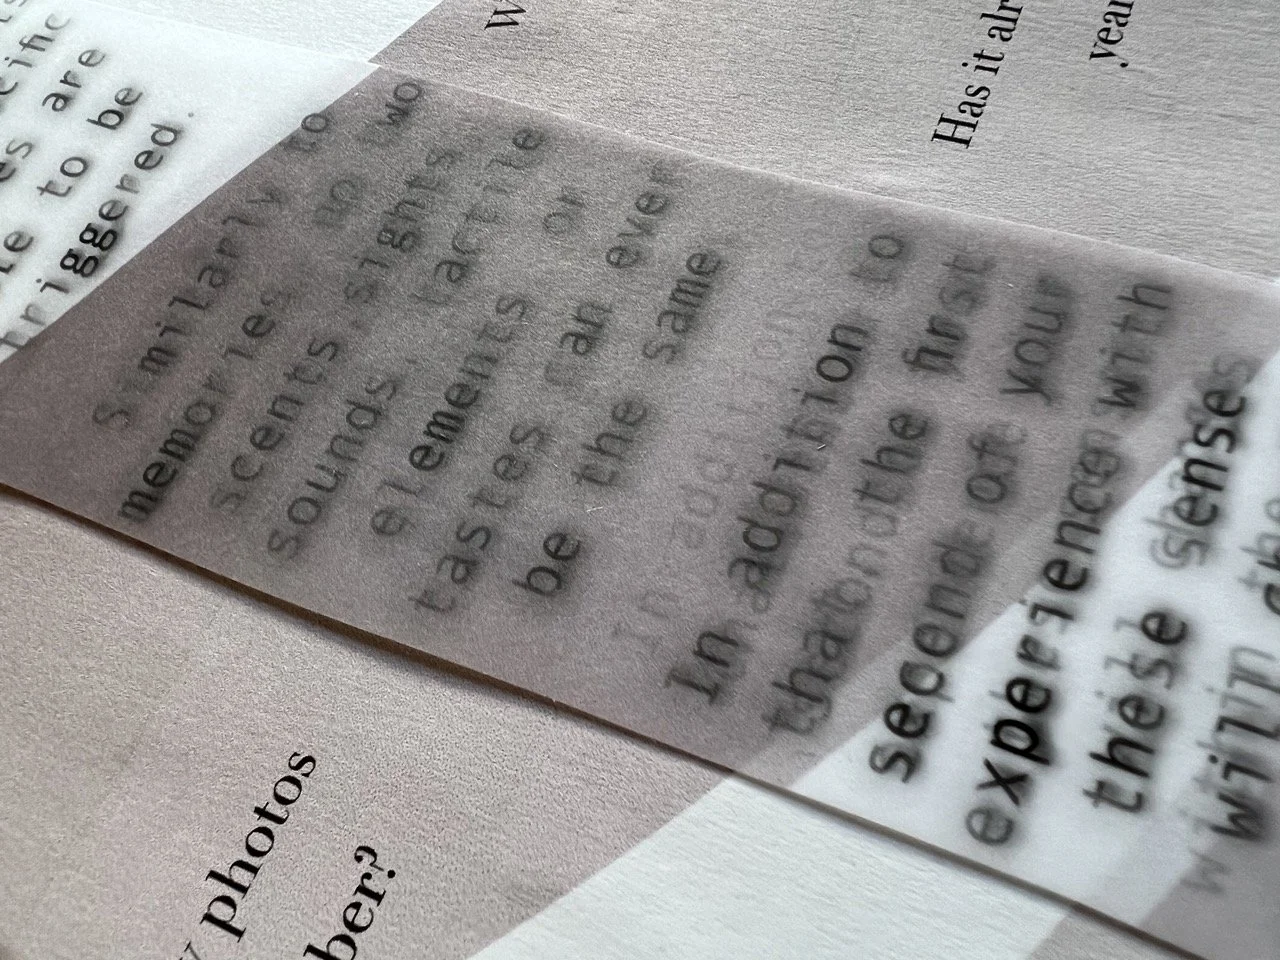 cific
es are
to be
triggered.
Similarly to
memories no two
scents, sights,
sounds, tactile
elements or
tastes can ever
be the same
In addition to
that the first
second of your
experience with
these senses
will
Has it alr
year
photos
ber?